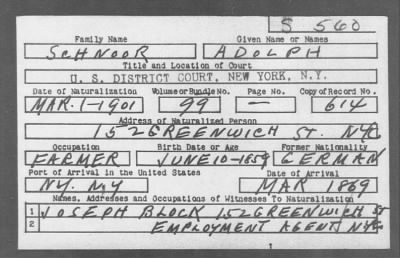 S 560
Family Name Given Name or Names
SCHNOOR ADOLPH
Title and Location of Court
U. S. DISTRICT COURT, NEW YORK, N.Y.
Date of Naturalization Volume or Bundle No. Page No. Copy of Record No.
MAR. 1-1901 99 — 614
Address of Naturalized Person
152 GREENWICH ST. NYC
Occupation Birth Date or Age Former Nationality
FARMER JUNE 10-1859 GERMAN
Port of Arrival in the United States Date of Arrival
NY. NY MAR 1869
Names, Addresses and Occupations of Witnesses To Naturalization
1 JOSEPH BLOCK 152 GREENWICH ST
2 EMPLOYMENT AGENT NYC